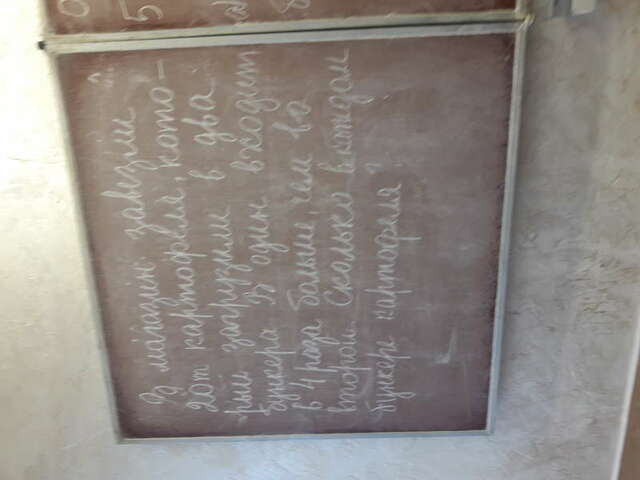 В магазин завезли
20т картофеля, кото-
рый загрузили в два
бункера В один входит
в 4 раза больше, чем во
второй. Сколько в каждом
бункере картофеля?
5